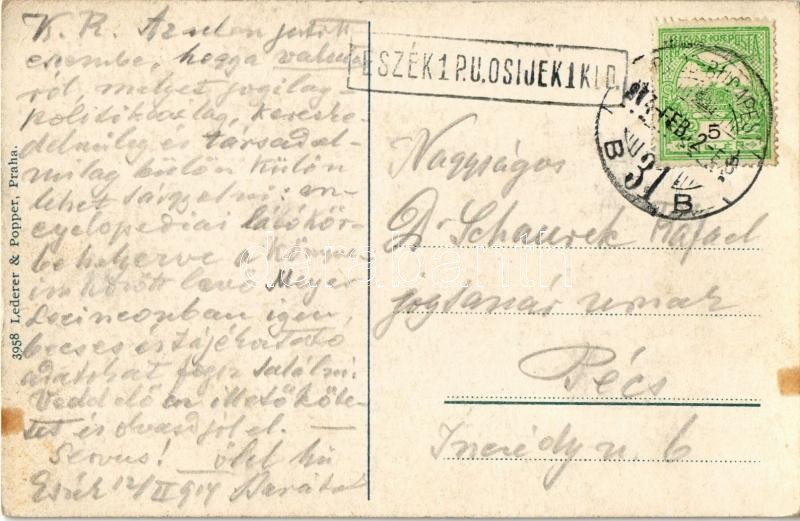 K. R. Az uton jutott
eszembe, hogy a
ról, melyet jogilag
politikailag, kereske-
delmileg és társadal-
milag külön külön
lehet tárgyalni: en-
cyclopediai látókör-
be helyezve a könyve-
im között levő Meyer
Lexiconban igen
becses és tájékoztató
adatokat fogsz találni.
Vedd elő az illető köte-
tet és olvasd jól el.
Servus! ölel hű
Eszék 12/II 914 Barátod
3958 Lederer & Popper, Praha.
ESZÉK 1 P.U. OSIJEK 1 KLD.
MAGYAR KIR. POSTA
5
FEB. 2
B 31 B
Nagyságos
Dr Schaurek Rafael
jogtanár urnak
Pécs
Inczédy u. 6